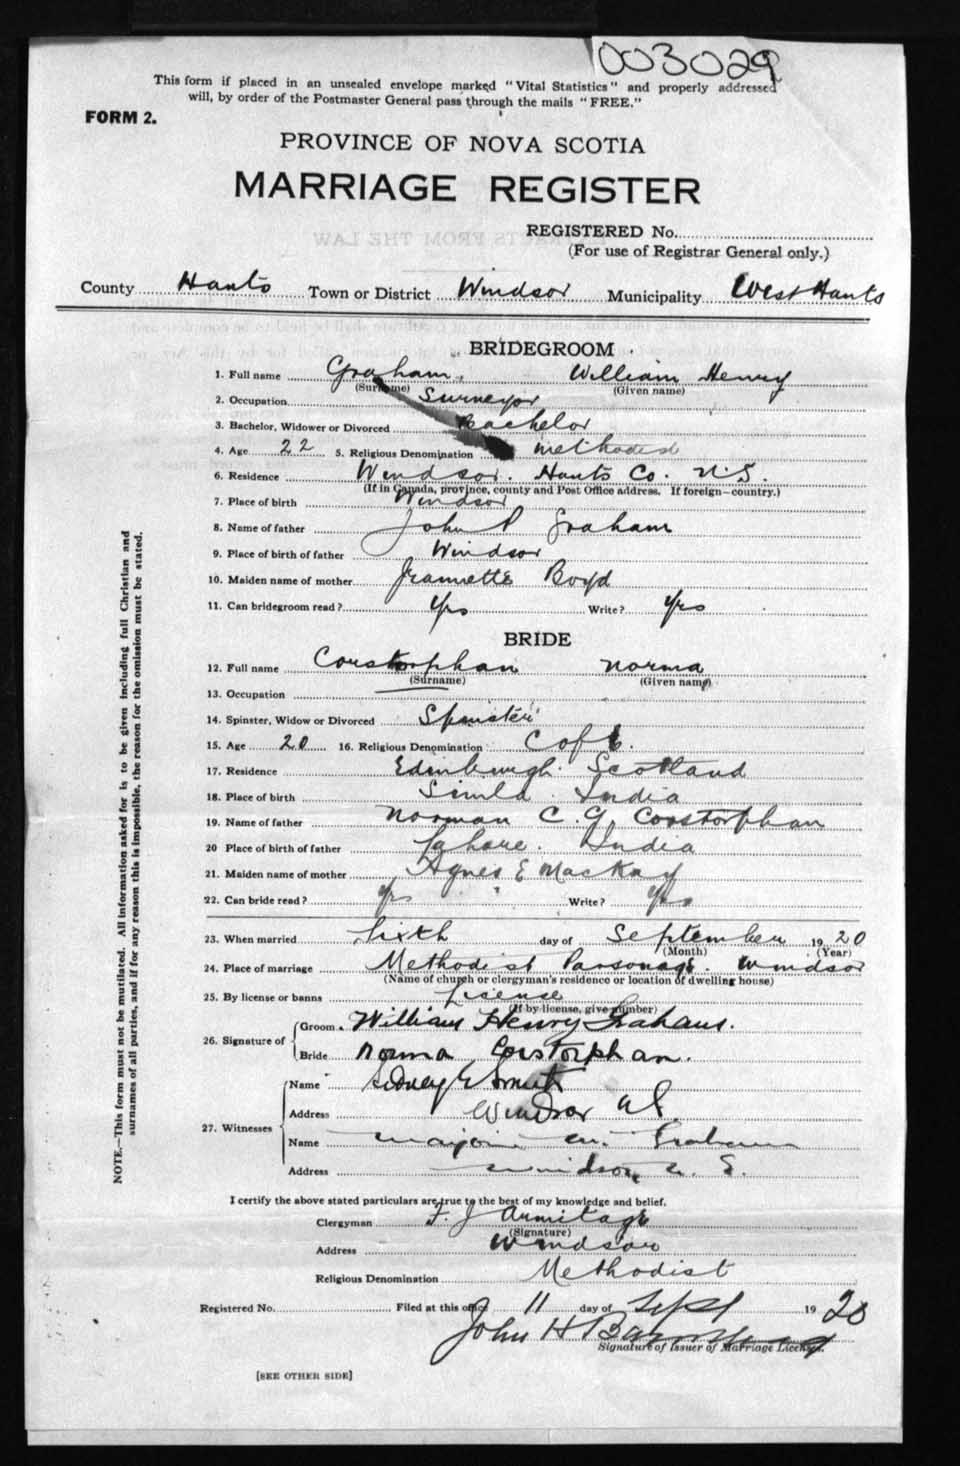 003029
This form if placed in an unsealed envelope marked "Vital Statistics" and properly addressed
will, by order of the Postmaster General pass through the mails "FREE."
FORM 2.
PROVINCE OF NOVA SCOTIA
MARRIAGE REGISTER
REGISTERED No.
(For use of Registrar General only.)
County Hants Town or District Windsor Municipality West Hants
BRIDEGROOM
1. Full name Graham, William Henry
(Surname) (Given name)
2. Occupation Surveyor
3. Bachelor, Widower or Divorced Bachelor
4. Age 22 5. Religious Denomination Methodist
6. Residence Windsor. Hants Co. N.S.
(If in Canada, province, county and Post Office address. If foreign—country.)
7. Place of birth Windsor
8. Name of father John P Graham
9. Place of birth of father Windsor
10. Maiden name of mother Jeannette Boyd
11. Can bridegroom read? Yes Write? Yes
BRIDE
12. Full name Corstorphan Norma
(Surname) (Given name)
13. Occupation
14. Spinster, Widow or Divorced Spinster
15. Age 20 16. Religious Denomination C of E.
17. Residence Edinburgh Scotland
18. Place of birth Simla. India
19. Name of father Norman C. G. Corstorphan
20 Place of birth of father Lahore. India
21. Maiden name of mother Agnes E MacKay
22. Can bride read? Yes " Write? Yes
23. When married Sixth day of September 1920
(Month) (Year)
24. Place of marriage Methodist Parsonage. Windsor
(Name of church or clergyman's residence or location of dwelling house)
25. By license or banns License
(If by license, give number)
26. Signature of Groom William Henry Graham.
Bride Norma Corstorphan.
27. Witnesses Name Sidney E Smith
Address Windsor N.S.
Name Marjorie M. Graham
Address Windsor N. S.
I certify the above stated particulars are true to the best of my knowledge and belief.
Clergyman F. J Armitage
(Signature)
Address Windsor
Religious Denomination Methodist
Registered No. Filed at this office 11 day of Sept 1920
John H
Signature of Issuer of Marriage License.
[SEE OTHER SIDE]
NOTE.—This form must not be mutilated. All information asked for is to be given including full Christian and
surnames of all parties, and if for any reason this is impossible, the reason for the omission must be stated.